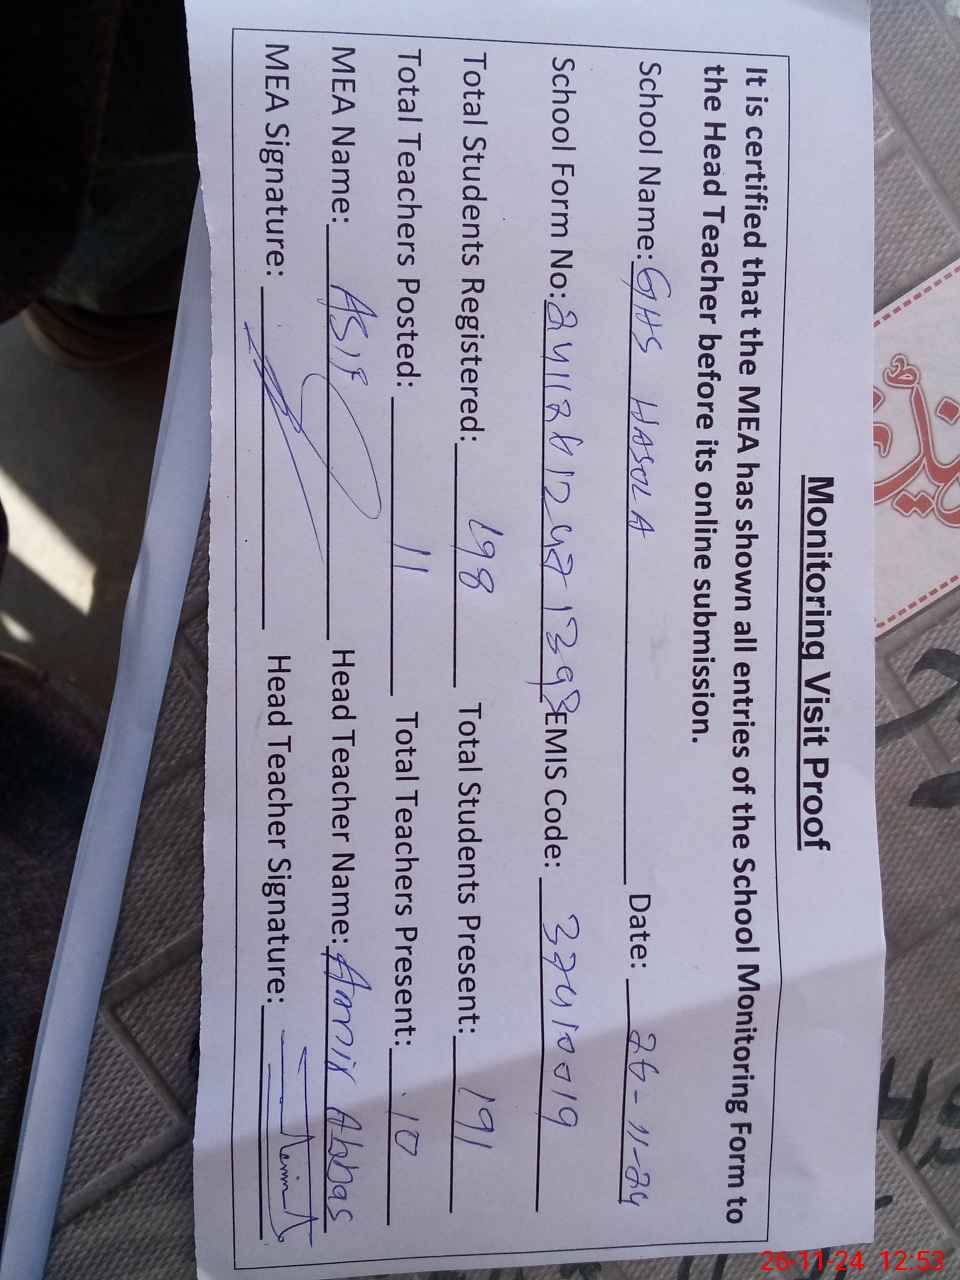 Monitoring Visit Proof
It is certified that the MEA has shown all entries of the School Monitoring Form to
the Head Teacher before its online submission.
School Name: GHS HASOLA Date: 26-11-24
School Form No: EMIS Code: 37410019
Total Students Registered: 198 Total Students Present: 191
Total Teachers Posted: 11 Total Teachers Present: 10
MEA Name: ASIF Head Teacher Name: Abbas
MEA Signature: Head Teacher Signature:
26-11-24 12:53